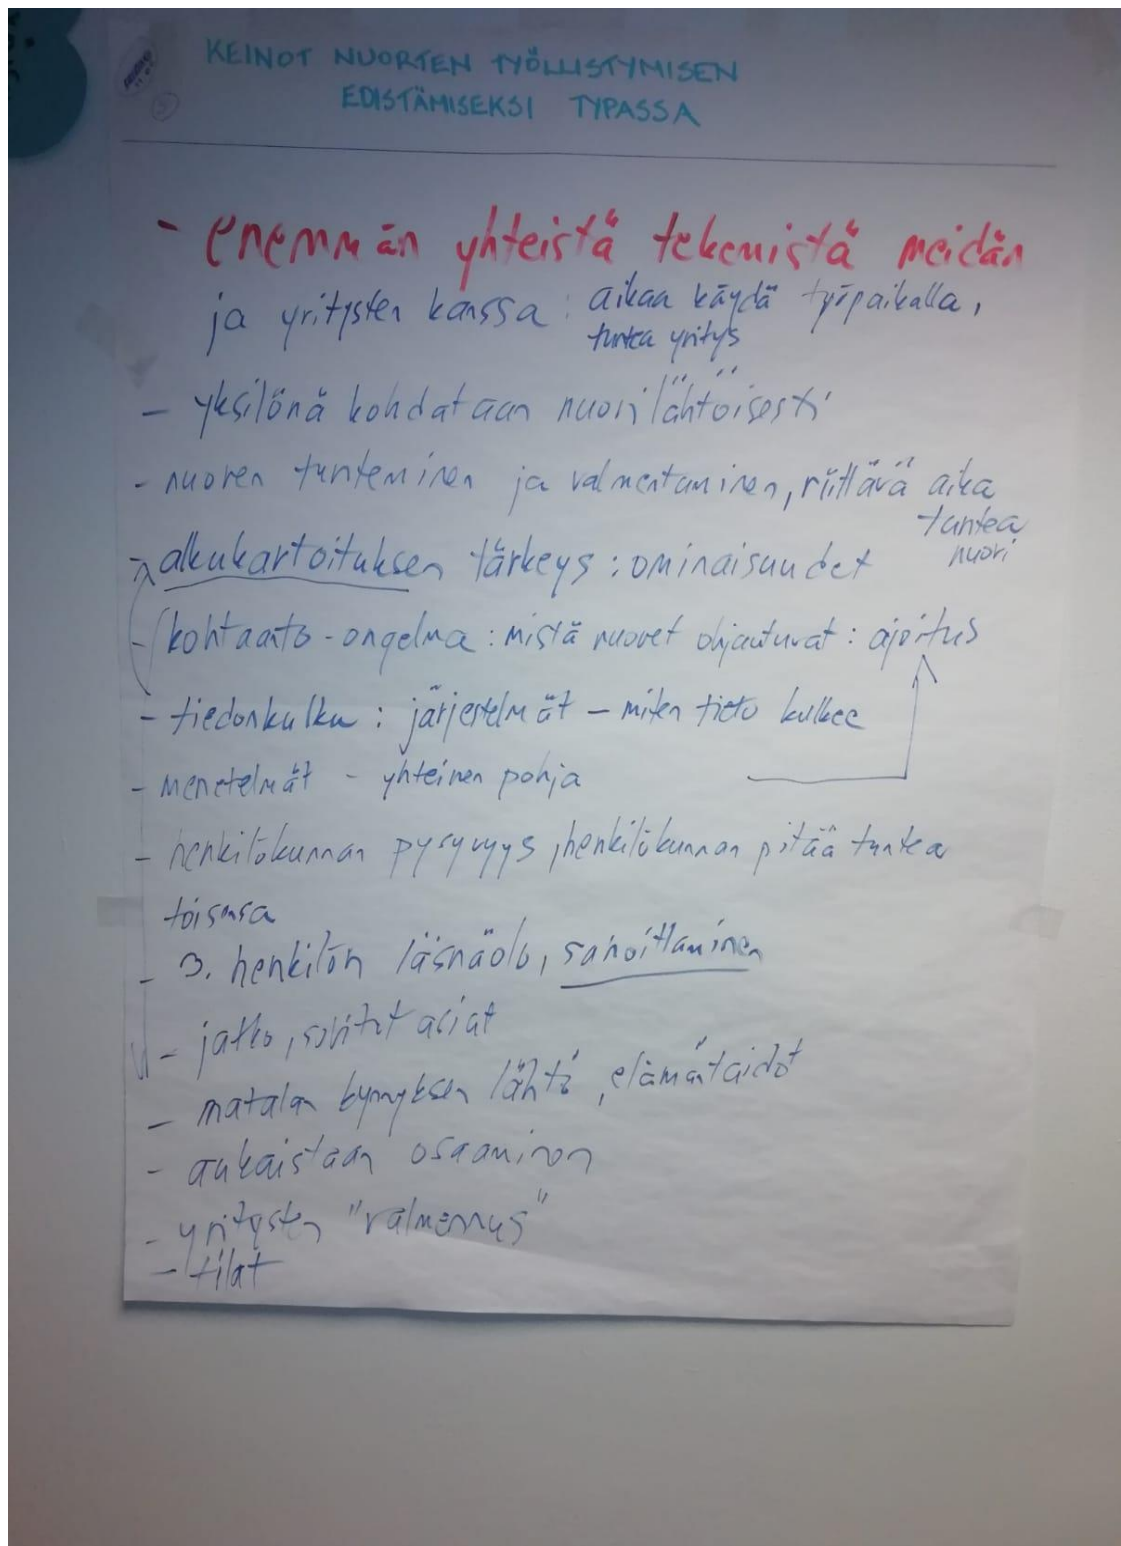 KEINOT NUORTEN TYÖLLISTYMISEN
EDISTÄMISEKSI TYPASSA
- enemmän yhteistä tekemistä meidän
ja yritysten kanssa : aikaa käydä työpaikalla,
tuntea yritys
- yksilönä kohdataan nuorilähtöisesti
- nuoren tunteminen ja valmentaminen, riittävä aika
tuntea
nuori
- alkukartoituksen tärkeys : ominaisuudet
- kohtaanto-ongelma : mistä nuoret ohjautuvat : ajoitus
- tiedonkulku : järjestelmät - miten tieto kulkee
- menetelmät - yhteinen pohja
- henkilökunnan pysyvyys, henkilökunnan pitää tuntea
toisensa
- 3. henkilön läsnäolo, sanoittaminen
- jatko, sovitut asiat
- matalan kynnyksen lähtö, elämäntaidot
- aukaistaan osaaminen
- yritysten "valmennus"
- tilat